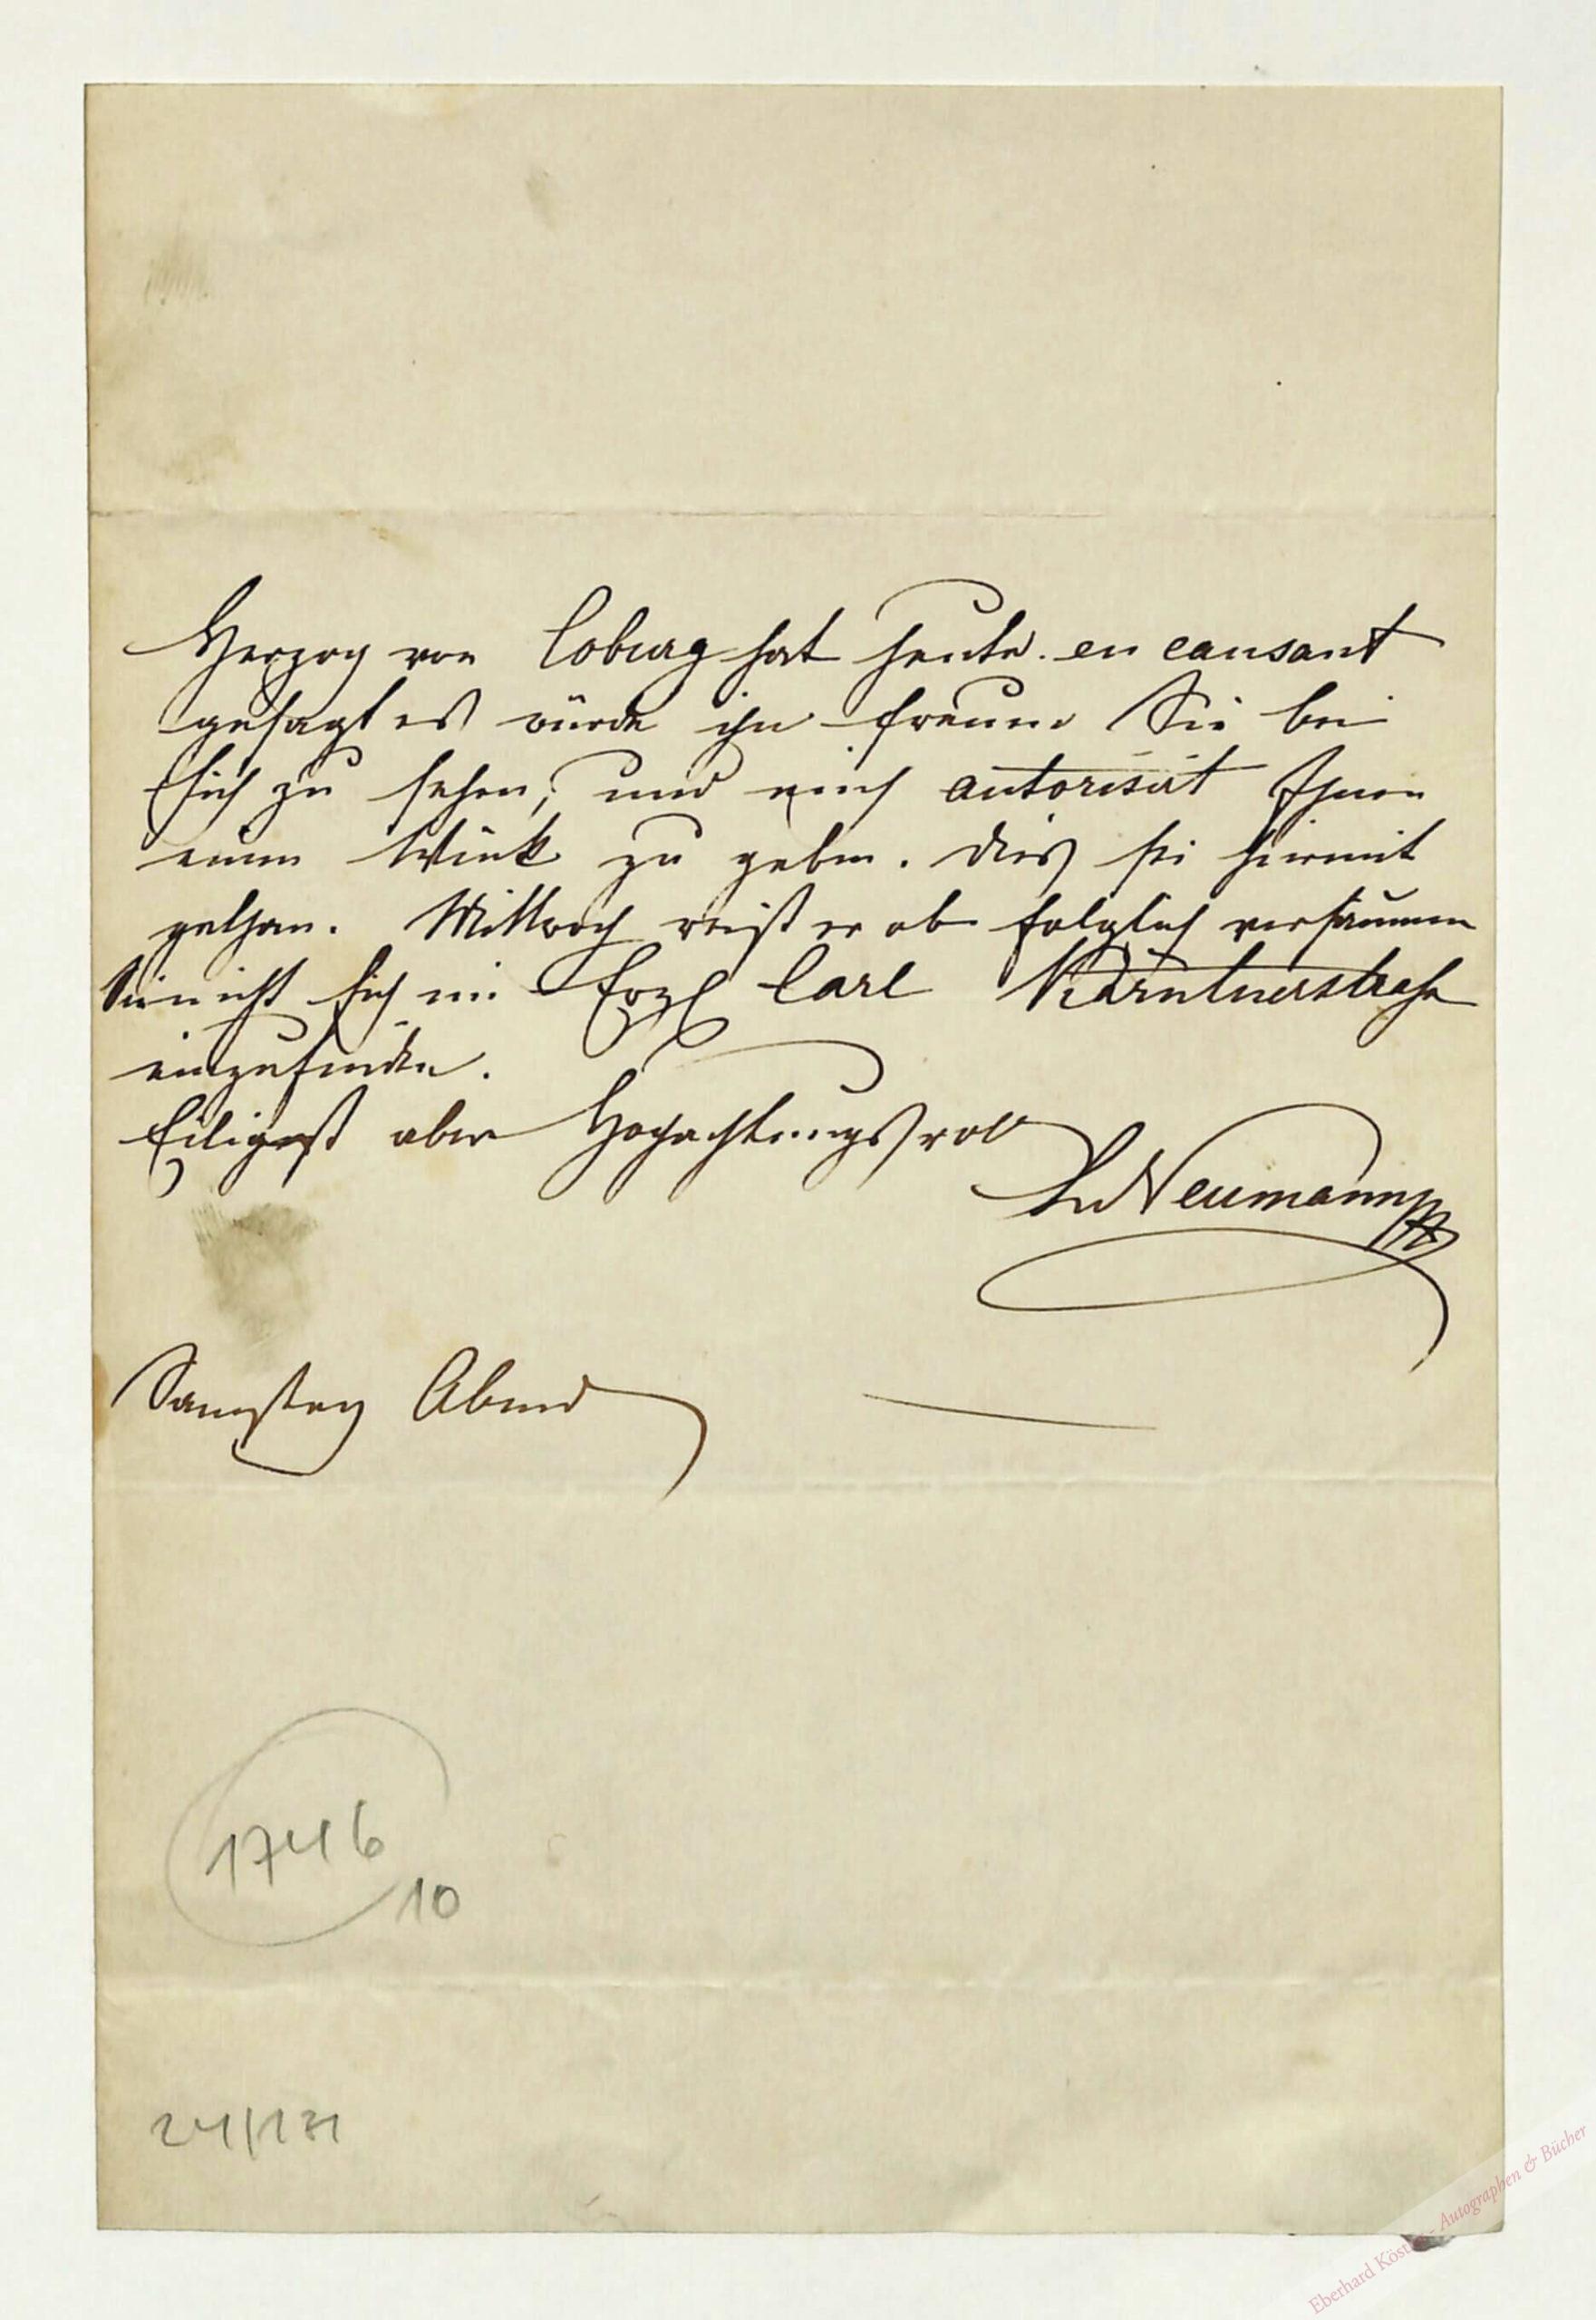 Herzog von Coburg hat heute en causant
gesagt es würde ihn freuen Sie bei
sich zu sehen, und mich autorisirt Ihnen
einen Wink zu geben. Dies sei hiermit
gethan. Mittwoch reist er ab folglich versäumen
Sie nicht sich im Erzh Carl Kärntnerstrasse
einzufinden.
Eiligst aber Hochachtungsvoll
LvNeumann
Samstag Abend
1746
10
24/131
Eberhard Köstler - Autographen & Bücher